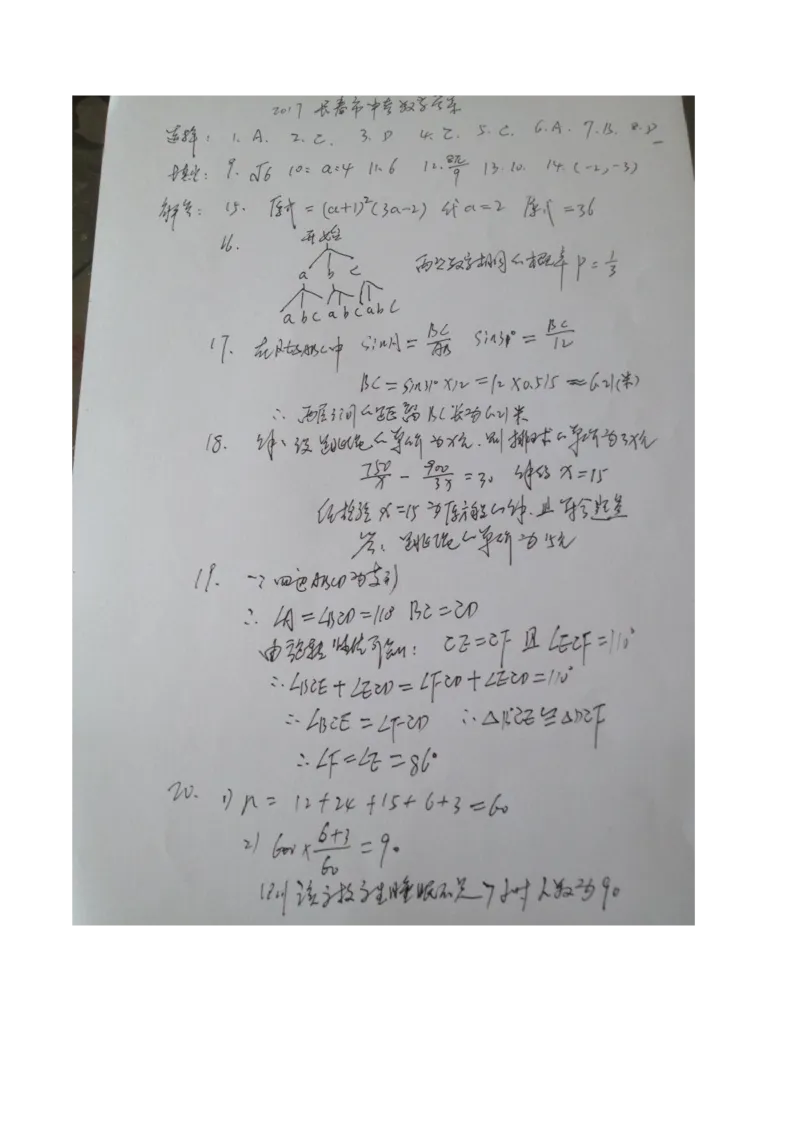 2017 长春市中考数学答案
选择: 1. A. 2. C. 3. D 4. C. 5. C. 6. A. 7. B. 8. D
填空: 9. √6 10: a=4 11. 6 12. 8π/9 13. 10. 14. (-2,-3)
解答: 15. 原式 = (a+1)²(3a-2) 代a=2 原式=36
16. 开始
a b c 两次数字相同的概率 P = 1/3
a b c a b c a b c
17. 在Rt△ABC中 sinA = BC/AB sin31° = BC/12
BC = sin31°×12 = 12×0.515 ≈ 6.21(米)
∴ 两层之间的距离BC长为6.21米
18. 解: 设跳绳的单价为x元. 则排球的单价为3x元
750/x - 900/3x = 30 解得 x=15
经检验 x=15 为原方程的解. 且符合题意
答: 跳绳的单价为15元
19. ∵四边ABCD为菱形
∴ ∠A=∠BCD=110° BC=CD
由 性质可知: CE=CF 且 ∠ECF=110°
∴∠BCE+∠ECD=∠FCD+∠ECD=110°
∴∠BCE=∠FCD ∴△BCE≌△DCF
∴∠F=∠E=86°
20. 1) n = 12+24+15+6+3=60
2) 600×(6+3)/60 = 90
该校学生睡眠不足7小时人数为90